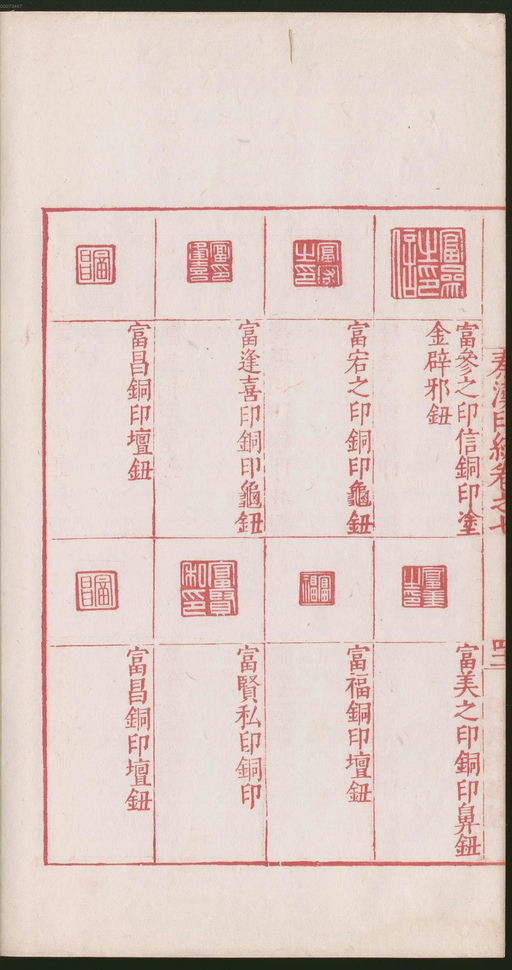 富參之印信銅印塗
金辟邪鈕
富宕之印銅印龜鈕
富逢喜印銅印龜鈕
富昌銅印壇鈕
富美之印銅印鼻鈕
富福銅印壇鈕
富賢私印銅印
富昌銅印壇鈕